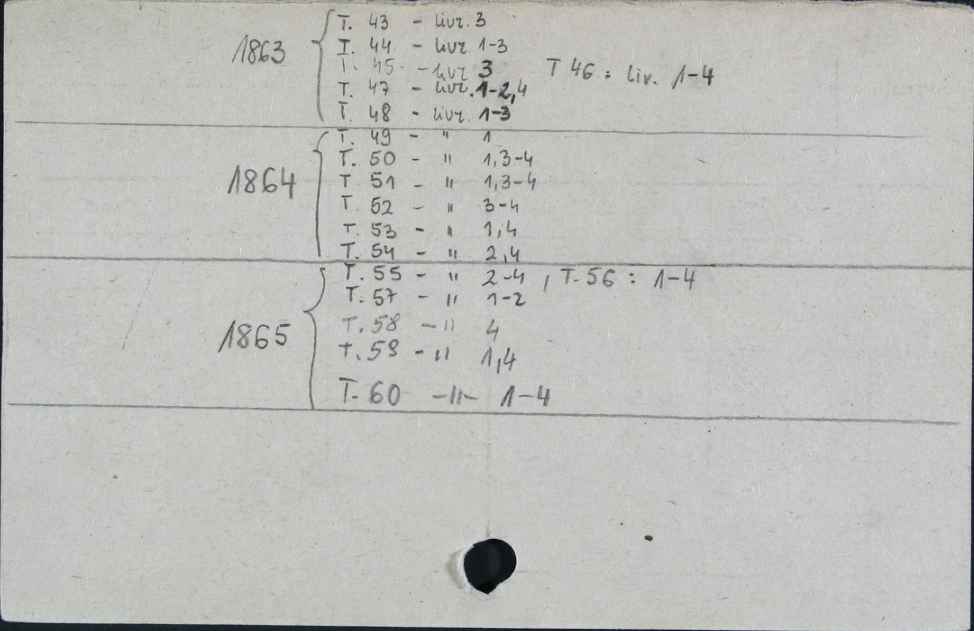 1863 T. 43 - Livr. 3
T. 44 - Livr 1-3
T. 45 - Livr 3 T 46 : Liv. 1-4
T. 47 - Livr. 1-2,4
T. 48 - Livr 1-3
T. 49 - " 1
1864 T. 50 - " 1,3-4
T 51 - " 1,3-4
T. 52 - " 3-4
T. 53 - " 1,4
T. 54 - " 2,4
T. 55 - " 2-4 , T. 56 : 1-4
T. 57 - " 1-2
1865 T. 58 - " 4
T. 59 - " 1,4
T. 60 - " - 1-4